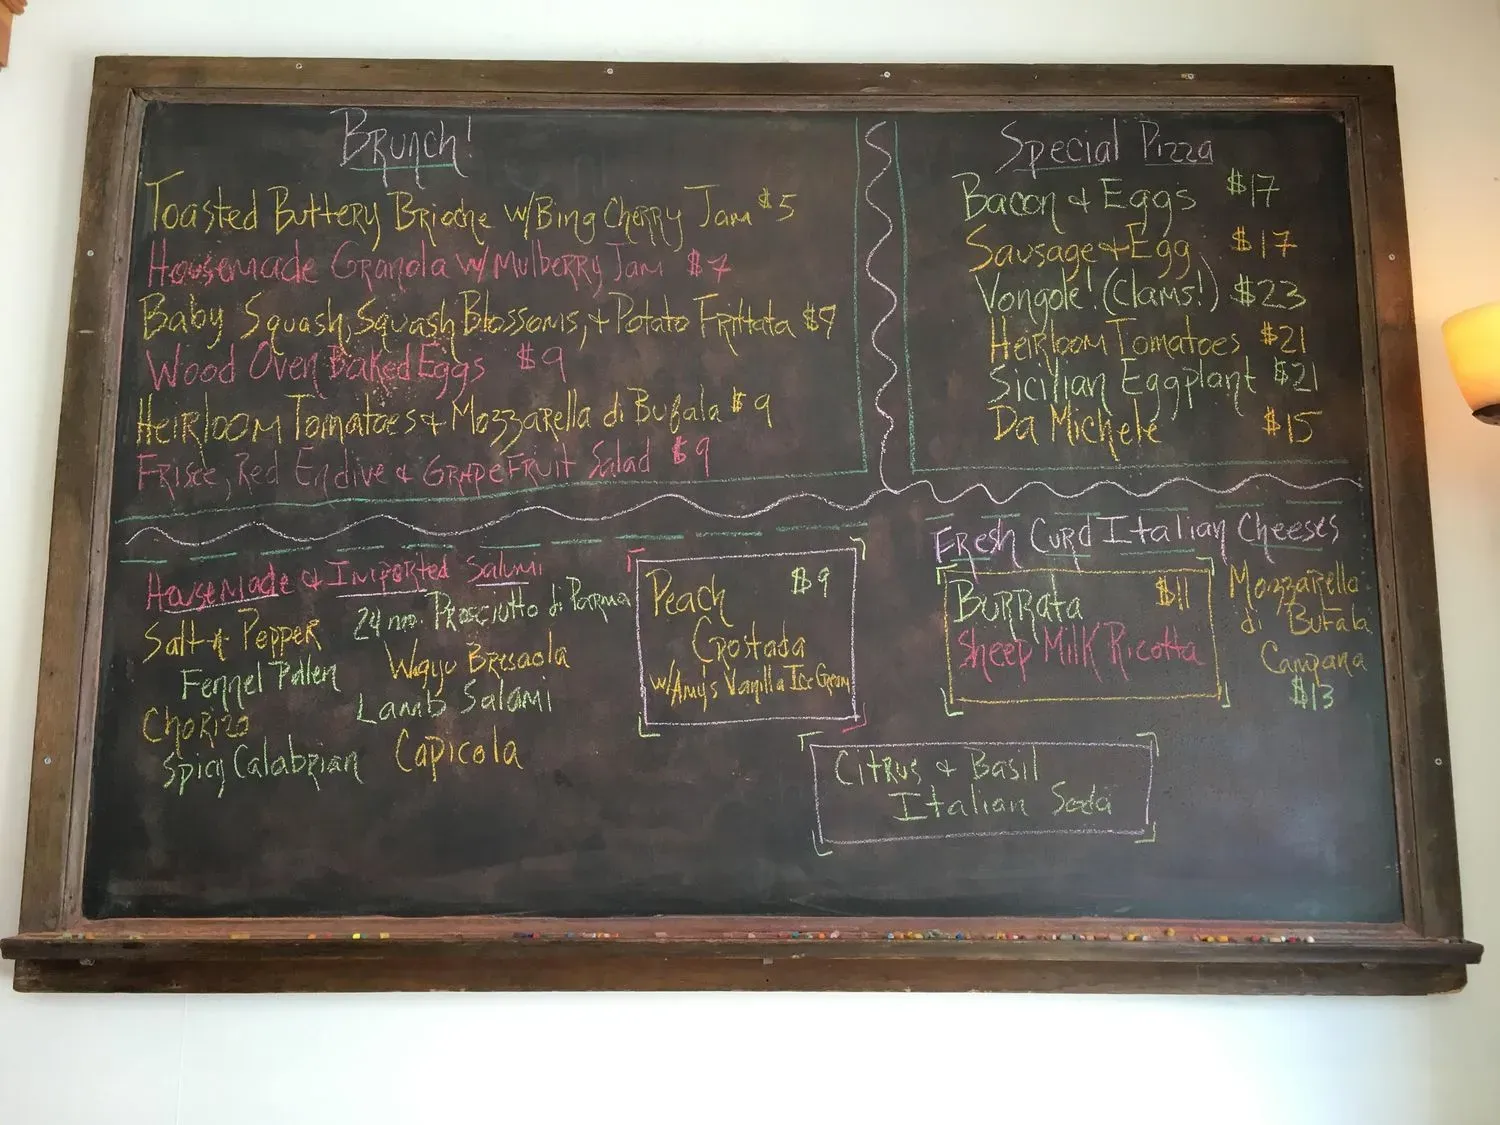 Brunch!
Toasted Buttery Brioche w/Bing Cherry Jam $5
Housemade Granola w/ Mulberry Jam $7
Baby Squash, Squash Blossoms, + Potato Frittata $9
Wood Oven Baked Eggs $9
Heirloom Tomatoes + Mozzarella di Bufala $9
Frisée, Red Endive & Grapefruit Salad $9
Special Pizza
Bacon & Eggs $17
Sausage + Egg $17
Vongole! (Clams!) $23
Heirloom Tomatoes $21
Sicilian Eggplant $21
Da Michele $15
Housemade & Imported Salumi
Salt & Pepper
Fennel Pollen
Chorizo
Spicy Calabrian
24 mo. Prosciutto di Parma
Wagyu Bresaola
Lamb Salami
Capicola
Peach $9
Crostada
w/Amy's Vanilla Ice Cream
Fresh Curd Italian Cheeses
Burrata $11
Sheep Milk Ricotta
Mozzarella
di Bufala
Campana
$13
Citrus & Basil
Italian Soda